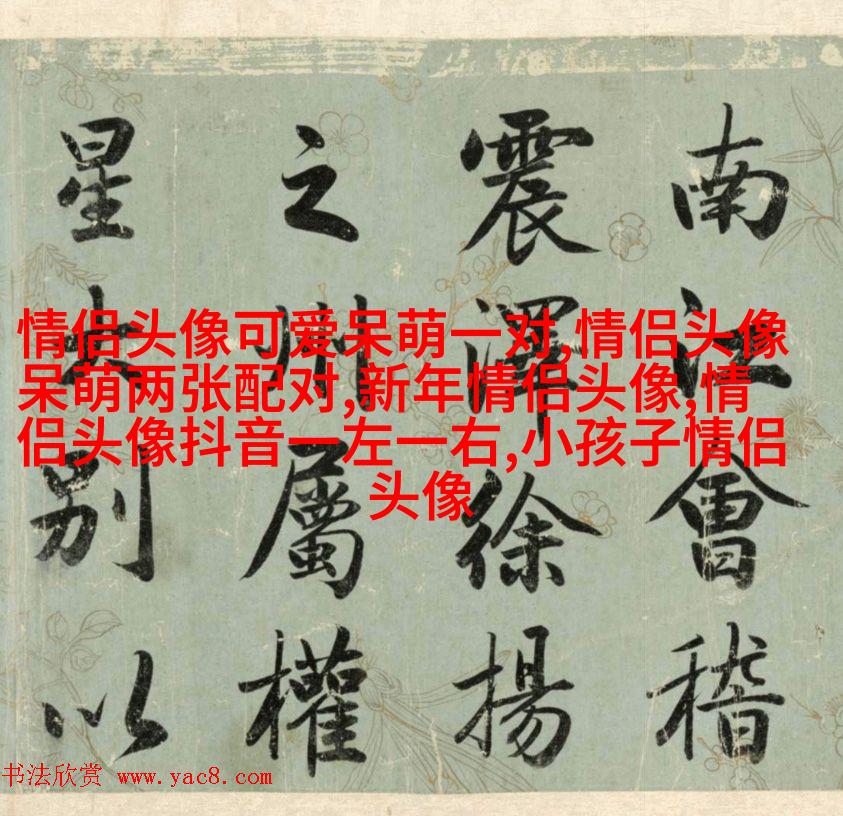 南江會稽
震澤徐揚
之州屬權
星別以
情侣头像可爱呆萌一对,情侣头像
呆萌两张配对,新年情侣头像,情
侣头像抖音一左一右,小孩子情侣
头像
书法欣赏 www.yac8.com